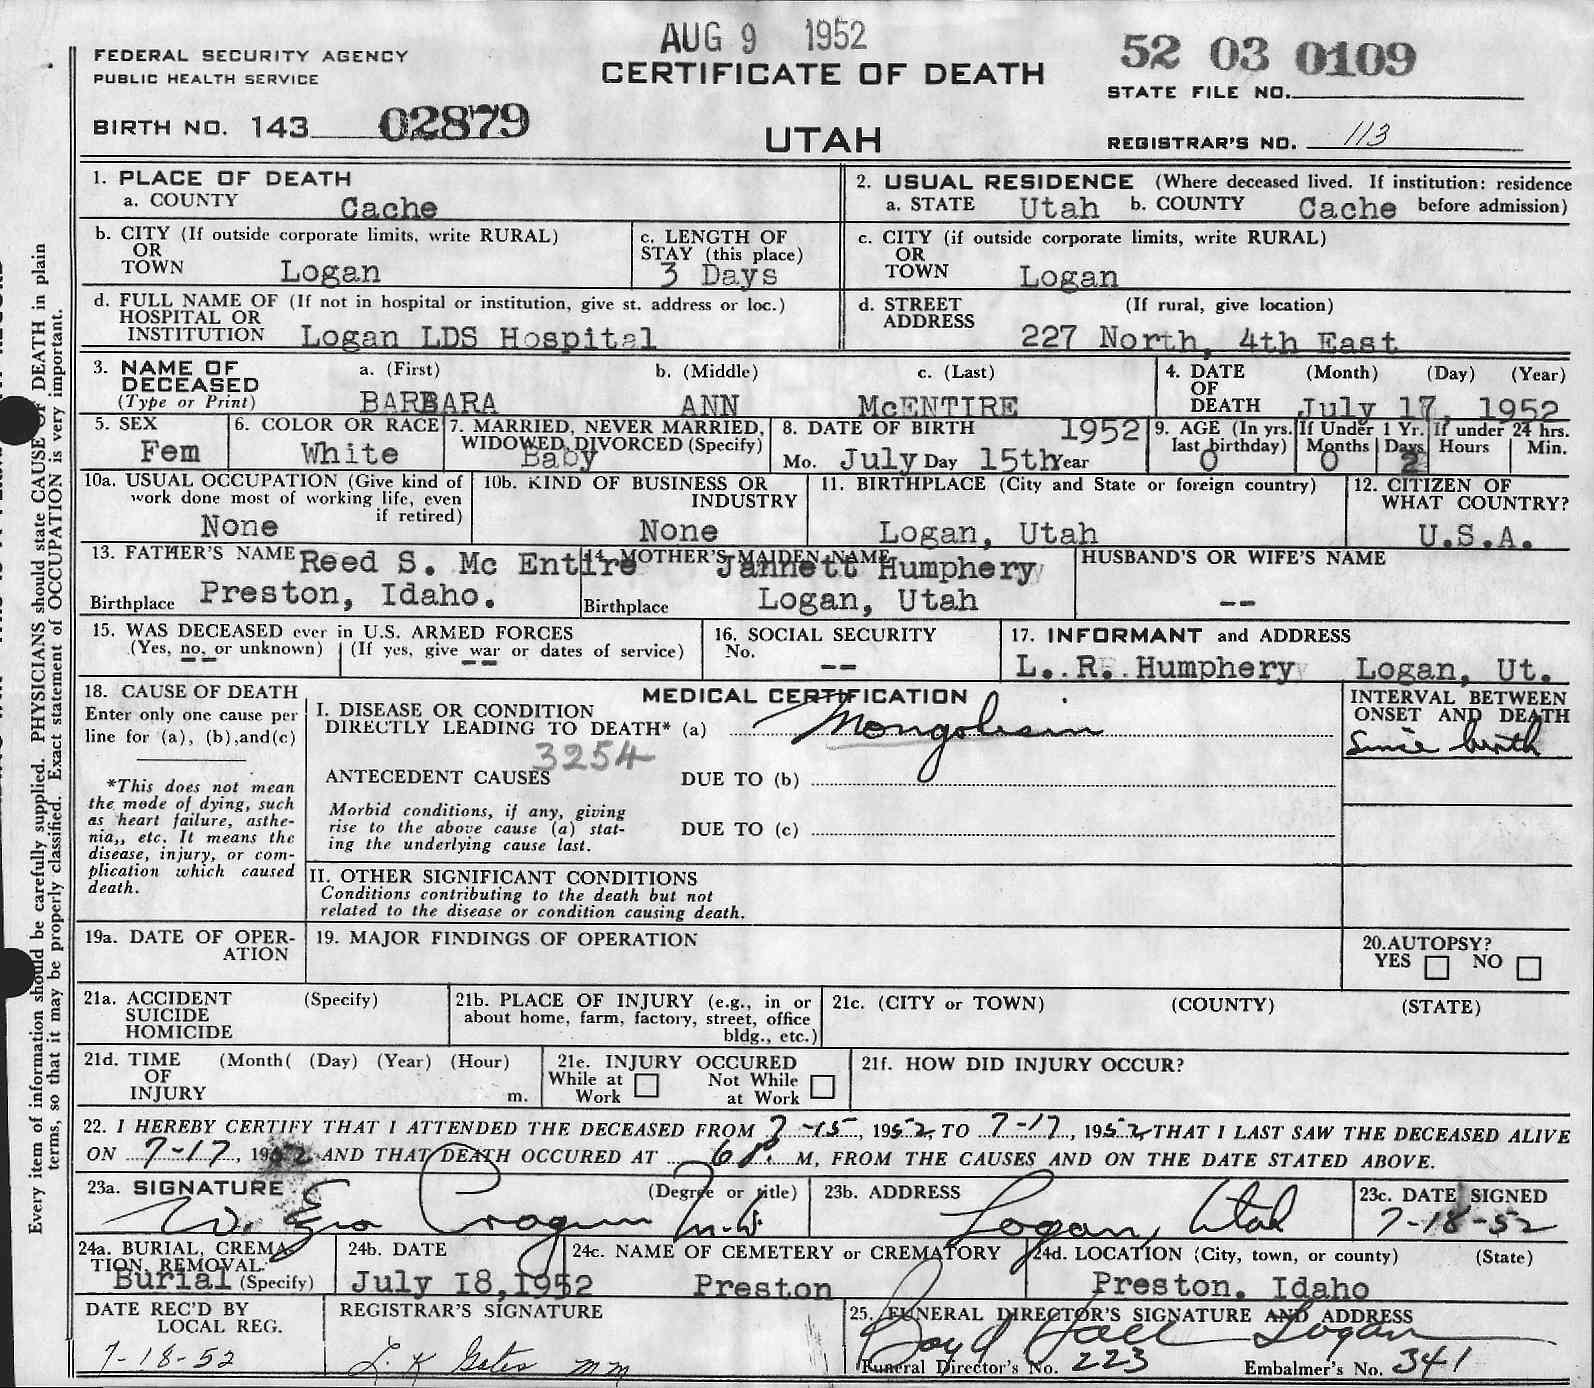 AUG 9 1952
FEDERAL SECURITY AGENCY
PUBLIC HEALTH SERVICE
CERTIFICATE OF DEATH
52 03 0109
STATE FILE NO.
BIRTH NO. 143 02879
UTAH
REGISTRAR'S NO. 113
1. PLACE OF DEATH
a. COUNTY Cache
2. USUAL RESIDENCE (Where deceased lived. If institution: residence
a. STATE Utah b. COUNTY Cache before admission)
b. CITY (If outside corporate limits, write RURAL)
OR
TOWN Logan
c. LENGTH OF
STAY (this place)
3 Days
c. CITY (if outside corporate limits, write RURAL)
OR
TOWN Logan
d. FULL NAME OF (If not in hospital or institution, give st. address or loc.)
HOSPITAL OR
INSTITUTION Logan LDS Hospital
d. STREET (If rural, give location)
ADDRESS
227 North, 4th East
3. NAME OF
DECEASED
(Type or Print)
a. (First) b. (Middle) c. (Last)
BARBARA ANN McENTIRE
4. DATE (Month) (Day) (Year)
OF
DEATH July 17, 1952
5. SEX
Fem
6. COLOR OR RACE
White
7. MARRIED, NEVER MARRIED,
WIDOWED, DIVORCED (Specify)
Baby
8. DATE OF BIRTH 1952
Mo. July Day 15th Year
9. AGE (In yrs.
last birthday)
0
If Under 1 Yr.
Months Days
0 2
If under 24 hrs.
Hours Min.
10a. USUAL OCCUPATION (Give kind of
work done most of working life, even
if retired)
None
10b. KIND OF BUSINESS OR
INDUSTRY
None
11. BIRTHPLACE (City and State or foreign country)
Logan, Utah
12. CITIZEN OF
WHAT COUNTRY?
U.S.A.
13. FATHER'S NAME Reed S. Mc Entire
Birthplace Preston, Idaho.
14. MOTHER'S MAIDEN NAME
Jannett Humphery
Birthplace Logan, Utah
HUSBAND'S OR WIFE'S NAME
--
15. WAS DECEASED ever in U.S. ARMED FORCES
(Yes, no, or unknown) (If yes, give war or dates of service)
-- --
16. SOCIAL SECURITY
No.
--
17. INFORMANT and ADDRESS
L. R. Humphery Logan, Ut.
18. CAUSE OF DEATH
Enter only one cause per
line for (a), (b),and(c)
*This does not mean
the mode of dying, such
as heart failure, asthe-
nia,, etc. It means the
disease, injury, or com-
plication which caused
death.
MEDICAL CERTIFICATION
I. DISEASE OR CONDITION
DIRECTLY LEADING TO DEATH* (a) Mongolism
3254
ANTECEDENT CAUSES DUE TO (b)
Morbid conditions, if any, giving
rise to the above cause (a) stat-
ing the underlying cause last.
DUE TO (c)
INTERVAL BETWEEN
ONSET AND DEATH
Since birth
II. OTHER SIGNIFICANT CONDITIONS
Conditions contributing to the death but not
related to the disease or condition causing death.
19a. DATE OF OPER-
ATION
19. MAJOR FINDINGS OF OPERATION
20.AUTOPSY?
YES NO
21a. ACCIDENT (Specify)
SUICIDE
HOMICIDE
21b. PLACE OF INJURY (e.g., in or
about home, farm, factory, street, office
bldg., etc.)
21c. (CITY or TOWN) (COUNTY) (STATE)
21d. TIME (Month( (Day) (Year) (Hour)
OF
INJURY m.
21e. INJURY OCCURED
While at Work
Not While at Work
21f. HOW DID INJURY OCCUR?
22. I HEREBY CERTIFY THAT I ATTENDED THE DECEASED FROM 7-15, 1952, TO 7-17, 1952 THAT I LAST SAW THE DECEASED ALIVE
ON 7-17, 1952 AND THAT DEATH OCCURED AT 6 P. M, FROM THE CAUSES AND ON THE DATE STATED ABOVE.
23a. SIGNATURE (Degree or title)
W. Ezra Cragun M.D.
23b. ADDRESS
Logan, Utah
23c. DATE SIGNED
7-18-52
24a. BURIAL, CREMA-
TION, REMOVAL.
Burial (Specify)
24b. DATE
July 18, 1952
24c. NAME OF CEMETERY or CREMATORY
Preston
24d. LOCATION (City, town, or county) (State)
Preston, Idaho
DATE REC'D BY
LOCAL REG.
7-18-52
REGISTRAR'S SIGNATURE
L. K Gates mm
25. FUNERAL DIRECTOR'S SIGNATURE AND ADDRESS
Boyd Hall Logan
Funeral Director's No. 223 Embalmer's No. 341
Every item of information should be carefully supplied. PHYSICIANS should state CAUSE OF DEATH in plain
terms, so that it may be properly classified. Exact statement of OCCUPATION is very important.